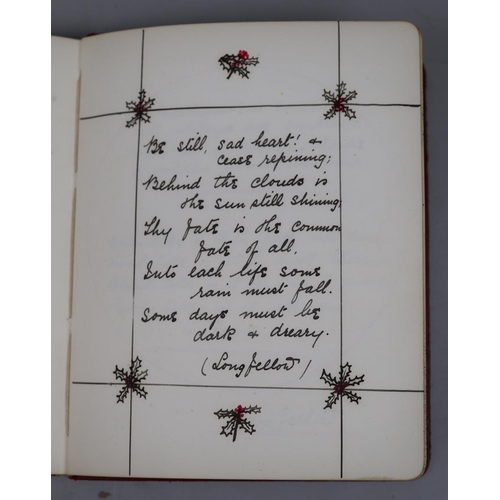 Be still, sad heart! &
cease repining;
Behind the clouds is
the sun still shining;
Thy fate is the common
fate of all,
Into each life some
rain must fall.
Some days must be
dark & dreary.
(Longfellow)